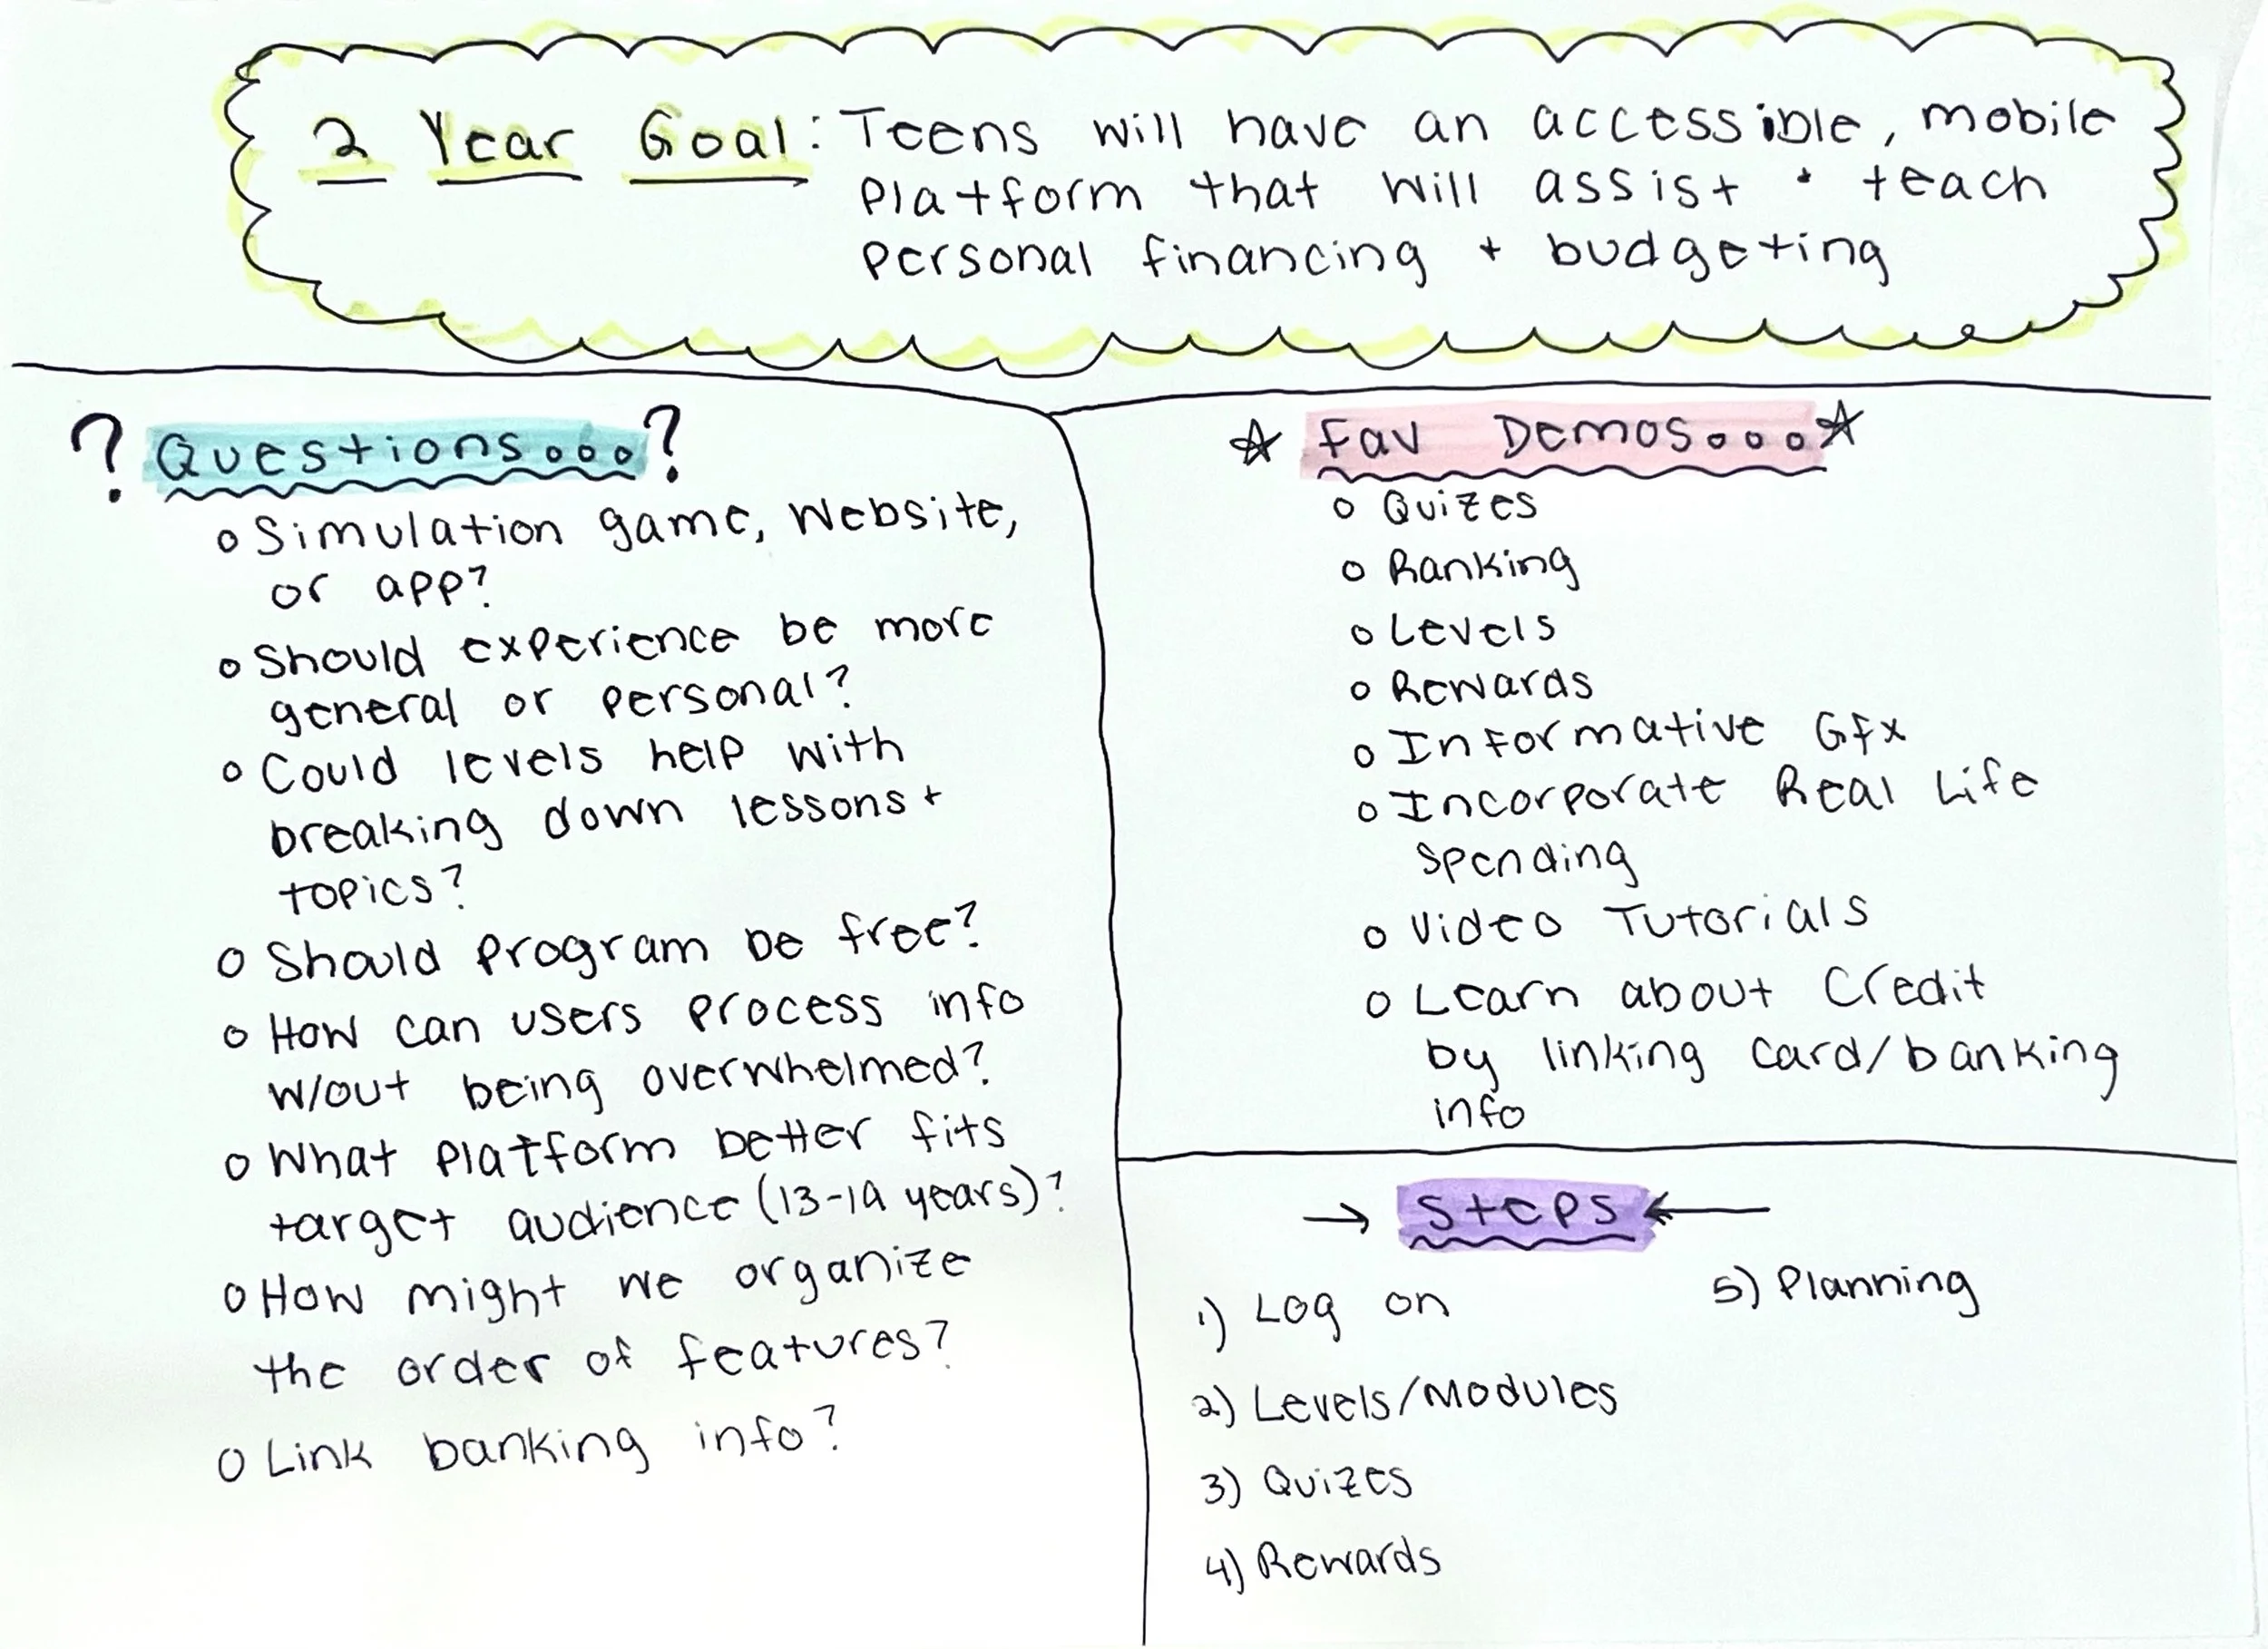 2 Year Goal: Teens will have an accessible, mobile
platform that will assist + teach
personal financing + budgeting
? Questions...?
o Simulation game, website,
or app?
o Should experience be more
general or personal?
o Could levels help with
breaking down lessons +
topics?
o Should program be free?
o How can users process info
w/out being overwhelmed?
o What platform better fits
target audience (13-19 years)?
o How might we organize
the order of features?
o Link banking info?
☆ Fav Demos...☆
o Quizes
o Ranking
o Levels
o Rewards
o Informative Gfx
o Incorporate Real Life
spending
o Video Tutorials
o Learn about Credit
by linking card/banking
info
→ Steps ←
1) Log on
2) Levels/Modules
3) Quizes
4) Rewards
5) Planning